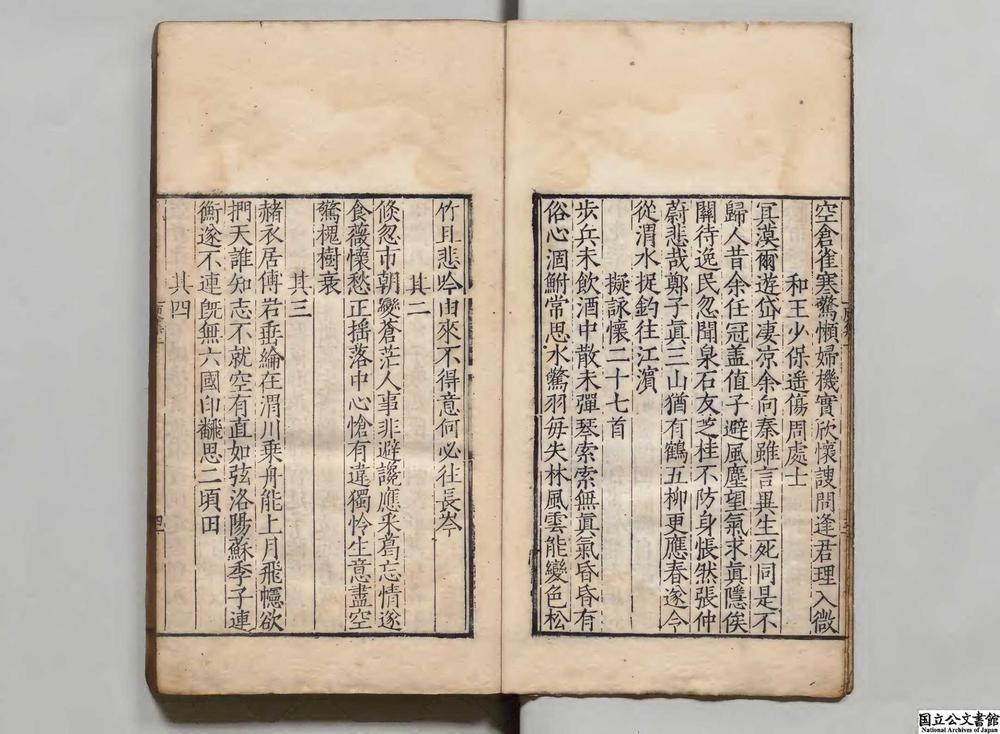 空倉雀寒驚懶婦機實欣懷諛問逢君理入微
和王少保遥傷周處士
冥漠爾遊岱凄凉余向秦雖言異生死同是不
歸人昔余任冠盖值子避風塵望氣求真隱俟
關待逸民忽聞泉石友芝桂不防身悵然張仲
蔚悲哉鄭子真三山猶有鶴五柳更應春遂令
從渭水投釣往江濱
擬詠懷二十七首
步兵未飲酒中散未彈琴索索無真氣昏昏有
俗心涸鮒常思水驚羽毎失林風雲能變色松
竹且悲吟由來不得意何必往長岑
其二
倐忽市朝變蒼茫人事非避讒應采葛忘情遂
食薇懷愁正摇落中心愴有違獨怜生意盡空
驚槐樹衰
其三
赭衣居傅岩垂綸在渭川乗舟能上月飛幰欲
捫天誰知志不就空有直如弦洛陽蘇季子連
衡遂不連旣無六國印飜思二頃田
其四
四
国立公文書館
National Archives of Japan